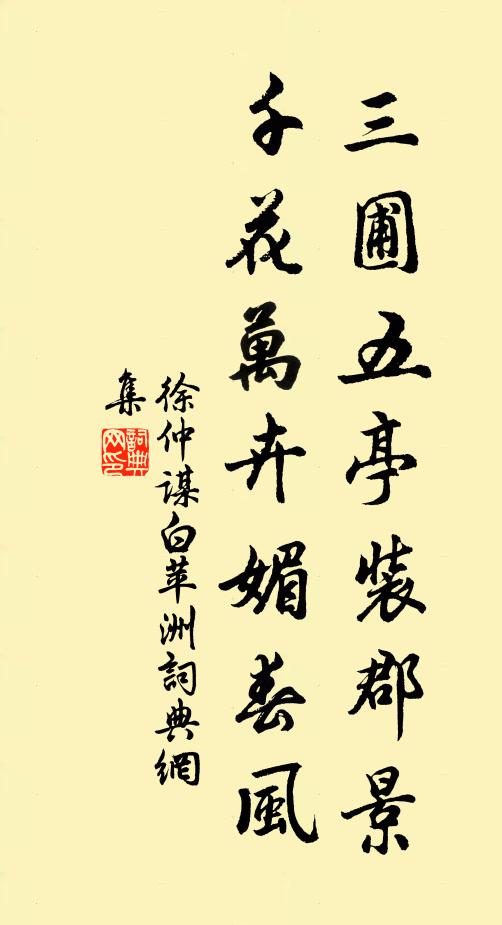 三圃五亭裝郡景
千花萬卉媚春風
徐仲謀白苹洲詞典網
集
詞典網印